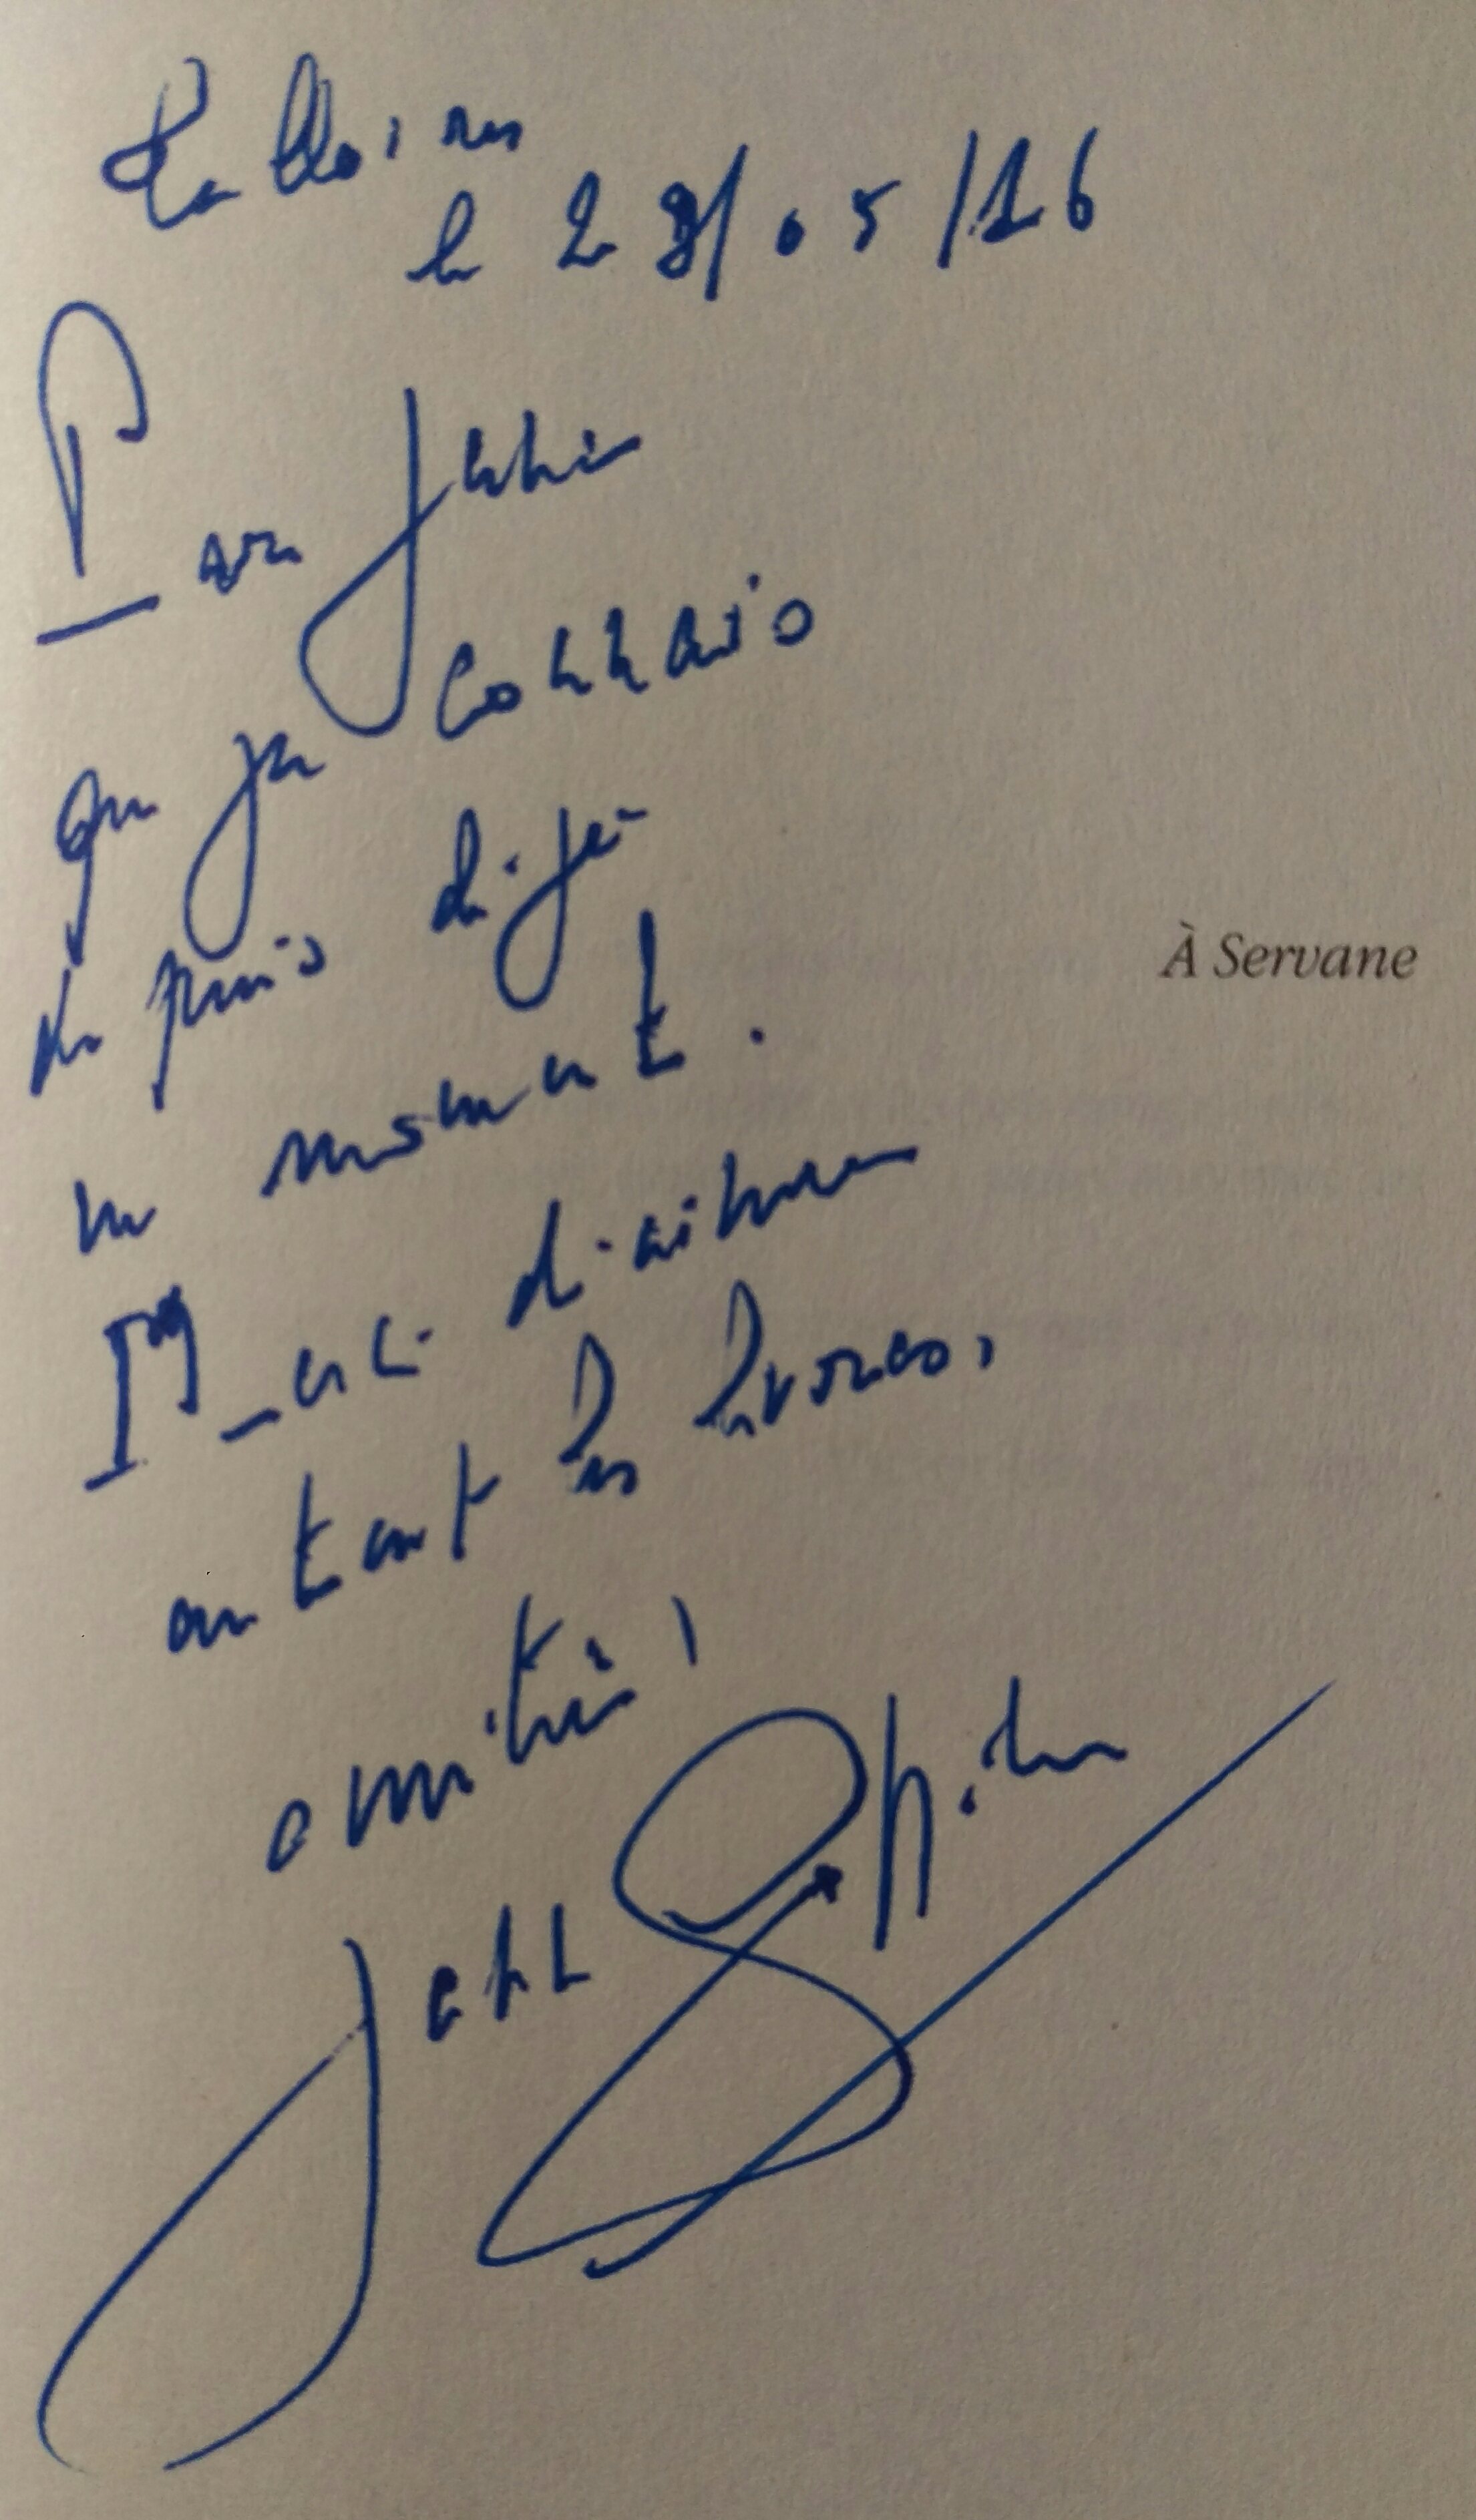 Talloires
le 28/05/16
Pour Julien
que je connais
depuis déjà
un moment.
Merci d'aimer
autant les livres.
amitié !
À Servane